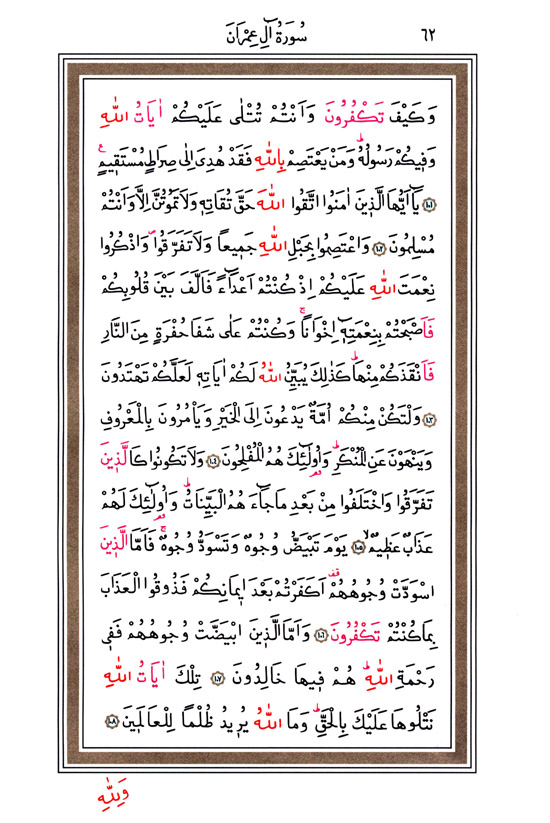 سُورَةُ اٰلِ عِمْرَانَ ٦٢
وَكَيْفَ تَكْفُرُونَ وَاَنْتُمْ تُتْلٰى عَلَيْكُمْ اٰيَاتُ اللّٰهِ
وَفِيكُمْ رَسُولُهُۜ وَمَنْ يَعْتَصِمْ بِاللّٰهِ فَقَدْ هُدِىَ اِلٰى صِرَاطٍ مُسْتَقِيمٍ۟
﴿١٠١﴾ يَٓا اَيُّهَا الَّذِينَ اٰمَنُوا اتَّقُوا اللّٰهَ حَقَّ تُقَاتِهِ وَلَا تَمُوتُنَّ اِلَّا وَاَنْتُمْ
مُسْلِمُونَ ﴿١٠٢﴾ وَاعْتَصِمُوا بِحَبْلِ اللّٰهِ جَمِيعاً وَلَا تَفَرَّقُواۖ وَاذْكُرُوا
نِعْمَتَ اللّٰهِ عَلَيْكُمْ اِذْ كُنْتُمْ اَعْدَٓاءً فَاَلَّفَ بَيْنَ قُلُوبِكُمْ
فَاَصْبَحْتُمْ بِنِعْمَتِهِٓ اِخْوَاناًۚ وَكُنْتُمْ عَلٰى شَفَا حُفْرَةٍ مِنَ النَّارِ
فَاَنْقَذَكُمْ مِنْهَاۜ كَذٰلِكَ يُبَيِّنُ اللّٰهُ لَكُمْ اٰيَاتِهِ لَعَلَّكُمْ تَهْتَدُونَ
﴿١٠٣﴾ وَلْتَكُنْ مِنْكُمْ اُمَّةٌ يَدْعُونَ اِلَى الْخَيْرِ وَيَأْمُرُونَ بِالْمَعْرُوفِ
وَيَنْهَوْنَ عَنِ الْمُنْكَرِۜ وَاُولٰٓئِكَ هُمُ الْمُفْلِحُونَ ﴿١٠٤﴾ وَلَا تَكُونُوا كَالَّذِينَ
تَفَرَّقُوا وَاخْتَلَفُوا مِنْ بَعْدِ مَا جَٓاءَهُمُ الْبَيِّنَاتُۜ وَاُولٰٓئِكَ لَهُمْ
عَذَابٌ عَظِيمٌۙ ﴿١٠٥﴾ يَوْمَ تَبْيَضُّ وُجُوهٌ وَتَسْوَدُّ وُجُوهٌۚ فَاَمَّا الَّذِينَ
اسْوَدَّتْ وُجُوهُهُمْ۠ اَكَفَرْتُمْ بَعْدَ اِيمَانِكُمْ فَذُوقُوا الْعَذَابَ
بِمَا كُنْتُمْ تَكْفُرُونَ ﴿١٠٦﴾ وَاَمَّا الَّذِينَ ابْيَضَّتْ وُجُوهُهُمْ فَفِى
رَحْمَةِ اللّٰهِۜ هُمْ فِيهَا خَالِدُونَ ﴿١٠٧﴾ تِلْكَ اٰيَاتُ اللّٰهِ
نَتْلُوهَا عَلَيْكَ بِالْحَقِّۜ وَمَا اللّٰهُ يُرِيدُ ظُلْماً لِلْعَالَمِينَ ﴿١٠٨﴾
وَلِلّٰهِ